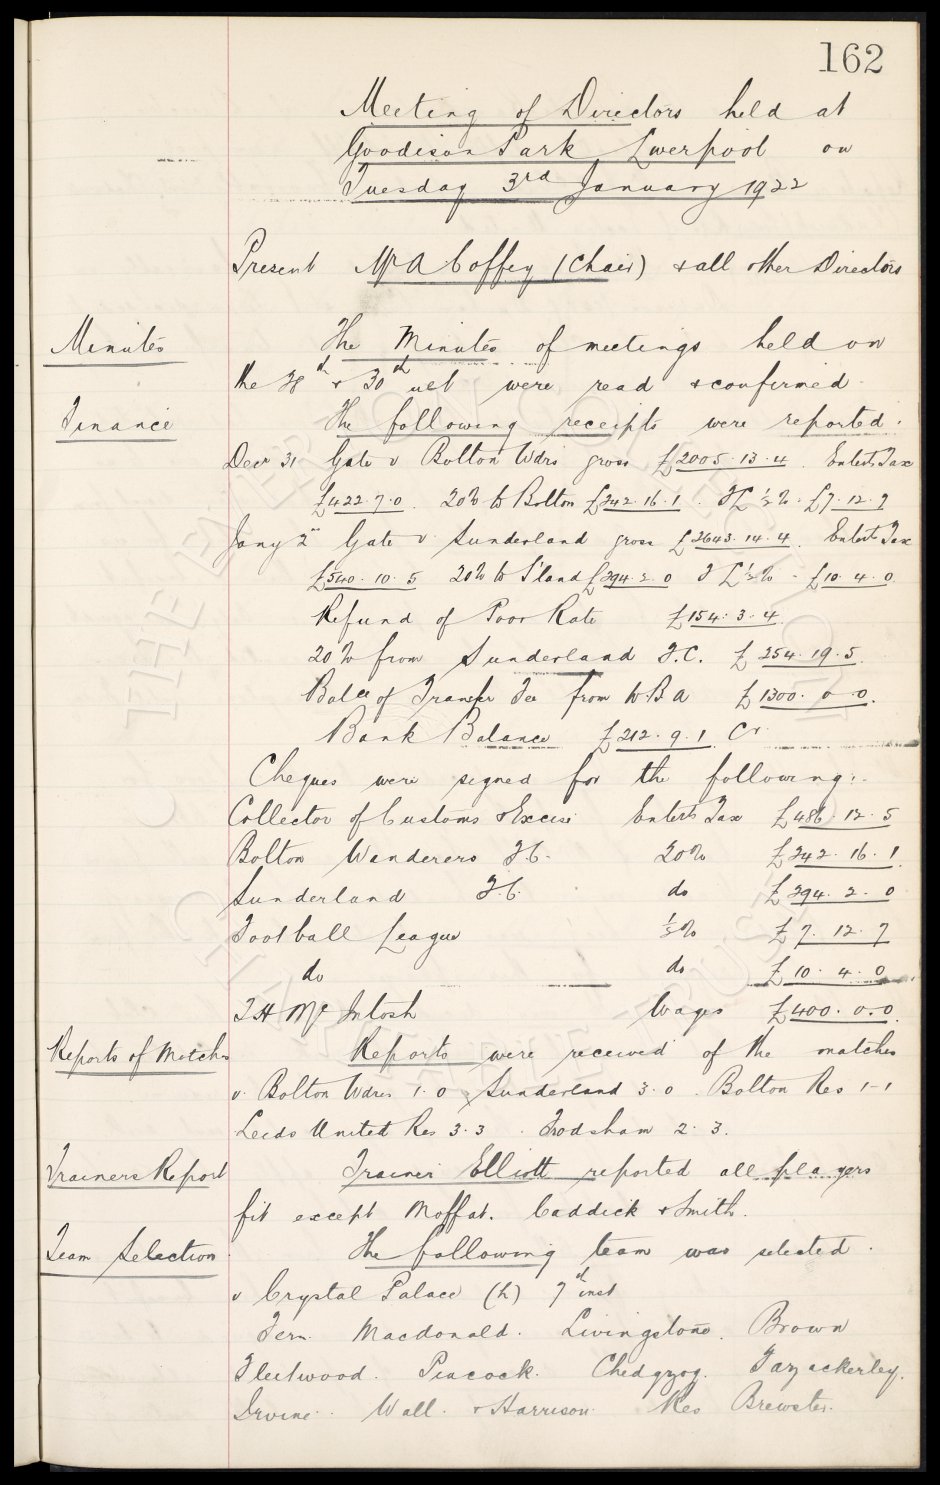 162
Meeting of Directors held at
Goodison Park Liverpool on
Tuesday 3rd January 1922
Present Mr A Coffey (Chair) & all other Directors
Minutes
The Minutes of meetings held on
the 28th & 30th ult were read & confirmed
Finance
The following receipts were reported:
Decr 31 Gate v Bolton Wdrs gross £2005.13.4. Enterts Tax
£422.7.0. 20% to Bolton £242.16.1. FL ½% - £7.12.7
Jany 2nd Gate v Sunderland gross £2643.14.4. Enterts Tax
£540.10.5 20% to S'land £294.2.0 FL ½% - £10.4.0
Refund of Poor Rate £154.3.4.
20% from Sunderland F.C. £254.19.5.
Balce of Transfer Fee from WBA £1300.0.0.
Bank Balance £212.9.1 Cr
Cheques were signed for the following:-
Collector of Customs & Excise Enterts Tax £486.12.5
Bolton Wanderers F.C. 20% £242.16.1.
Sunderland F.C. do £294.2.0
Football League ½% £7.12.7
do do £10.4.0
T H McIntosh Wages £400.0.0.
Reports of Matches
Reports were received of the matches
v. Bolton Wdrs 1.0 Sunderland 3.0. Bolton Res 1-1
Leeds United Res 3.3. Frodsham 2.3.
Trainers Report
Trainer Elliott reported all players
fit except Moffat. Caddick & Smith.
Team Selection
The following team was selected.
v Crystal Palace (h) 7th inst
Fern. Macdonald. Livingstone. Brown
Fleetwood. Peacock. Chedgzoy. Fazackerley.
Irvine. Wall. & Harrison. Res Brewster.